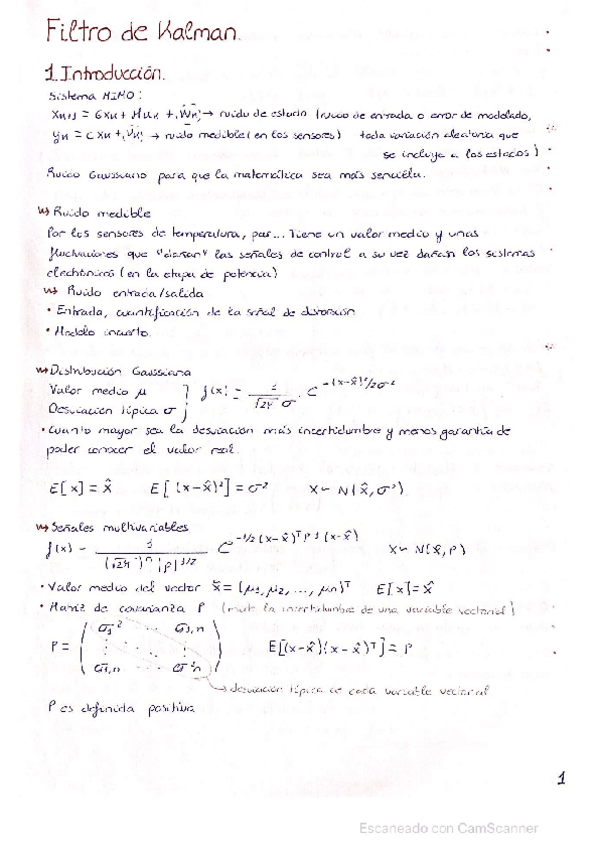 Filtro de Kalman.
1. Introducción.
Sistema MIMO:
Xn+1 = G Xn + H Un + Wn → ruido de estado (ruido de entrada o error de modelado,
yn = C Xn + Vn → ruido medible (en los sensores) toda variación aleatoria que
se incluya a los estados)
Ruido Gaussiano para que la matemática sea más sencilla.
Ruido medible
Por los sensores de temperatura, par... Tiene un valor medio y unas
fluctuaciones que "dañan" las señales de control a su vez dañan los sistemas
electrónicos (en la etapa de potencia)
Ruido entrada/salida
• Entrada, cuantificación de la señal de
• Modelo incierto.
Distribución Gaussiana
Valor medio μ
Desviación típica σ
f(x) = 1/(√2π σ) · e^(-(x-x̂)²/2σ²)
• Cuanto mayor sea la desviación más incertidumbre y menos garantía de
poder conocer el valor real.
E[x] = x̂ E[(x-x̂)²] = σ² X ~ N(x̂, σ²)
Señales multivariables
f(x) = 1/((√2π)^n |P|^1/2) e^(-1/2 (x-x̂)^T P^-1 (x-x̂)) X ~ N(x̂, P)
• Valor medio del vector x̂ = (μ1, μ2, ..., μn)^T E[x] = x̂
• Matriz de covarianza P (mide la incertidumbre de una variable vectorial)
P = ( σ1² ... σ1,n
⋮ ⋱ ⋮
σ1,n ... σ²n ) E[(x-x̂)(x-x̂)^T] = P
→ desviación típica de cada variable vectorial
P es definida positiva
1
Escaneado con CamScanner